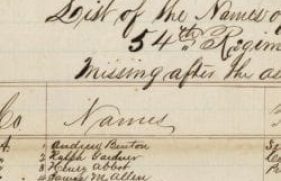 List of the Names o
54th Regim
Missing after the as
Co Names
A. 1 Andrew Benton
2 Ralph Gardner
3 Henry Abbot
4 James M. Allen